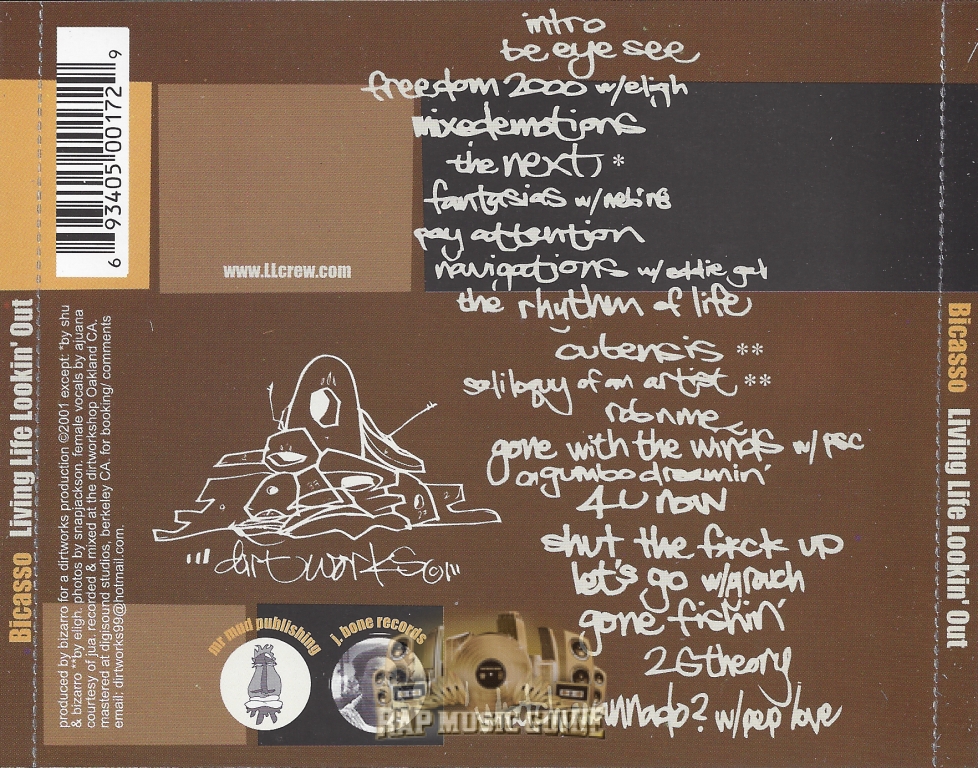 intro
be eye see
freedom 2000 w/eligh
mixedemotions
the next *
fantasias w/
pay attention
navigations w/ eddie
the rhythm of life
cubensis **
soliloquy of an artist **
robnme
gone with the winds w/ psc
a gumbo dreamin'
4 U NOW
shut the f*ck up
let's go w/grouch
gone fishin'
2Gtheory
w/pep love
6 93405 00172 9
www.LLcrew.com
Bicasso Living Life Lookin' Out
produced by bizarro for a dirtworks production ©2001 except: *by shu
& bizarro **by eligh. photos by snapjackson. female vocals by ajuana
courtesy of jua. recorded & mixed at the dirtworkshop Oakland CA.
mastered at digisound studios, berkeley CA. for booking/ comments
email: dirtworks99@hotmail.com.
"dirtworks©"
mr mud publishing
j. bone records
RAP MUSIC GUIDE
Bicasso Living Life Lookin' Out